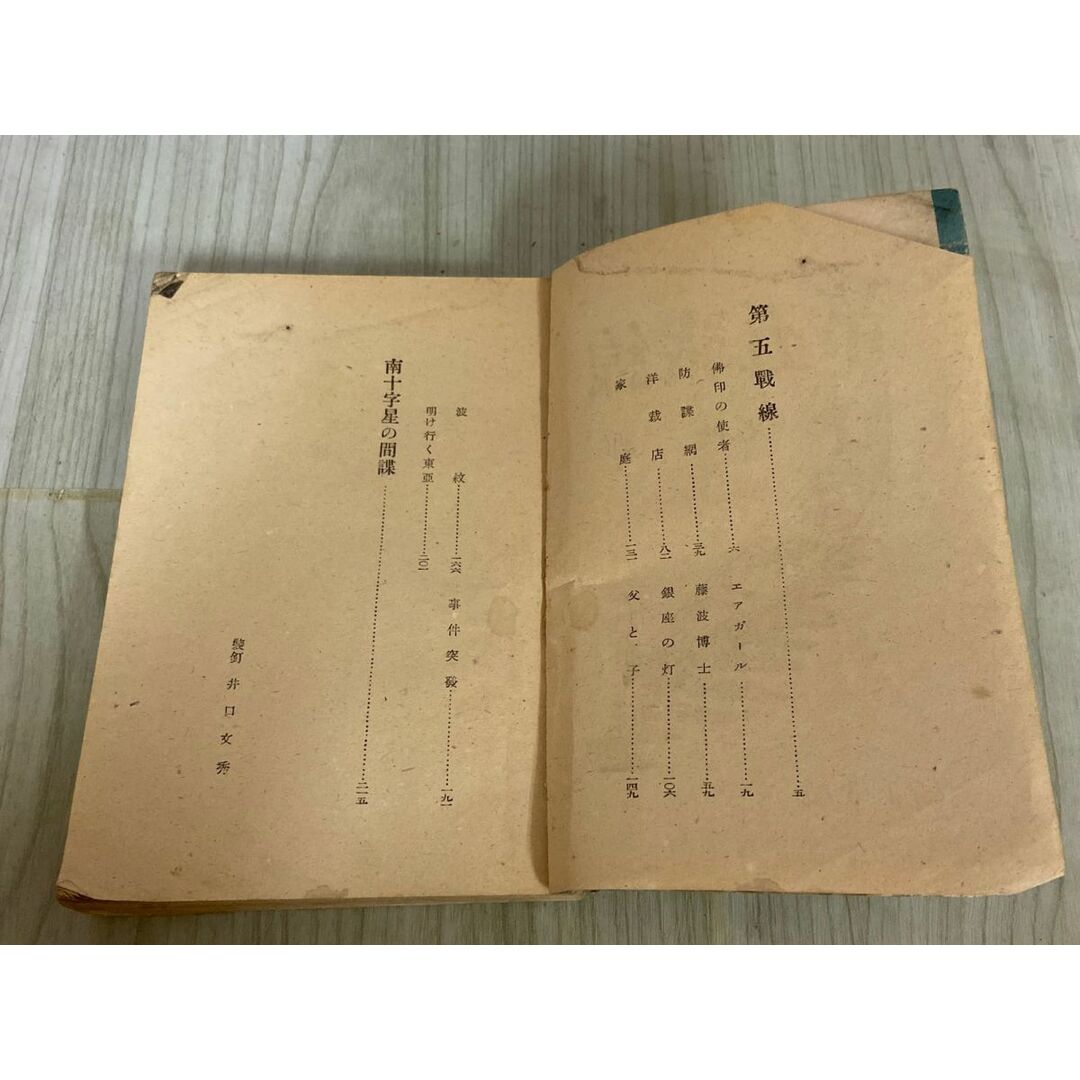 第五戰線…………五
佛印の使者…………六
エアガール…………一九
防諜網…………三九
藤波博士…………五九
洋裁店…………八二
銀座の灯…………一〇六
家庭…………一三一
父と子…………一四九
波紋…………一六六
事件突發…………一九一
明け行く東亞…………二〇一
南十字星の間諜…………二一五
裝釘 井口文秀